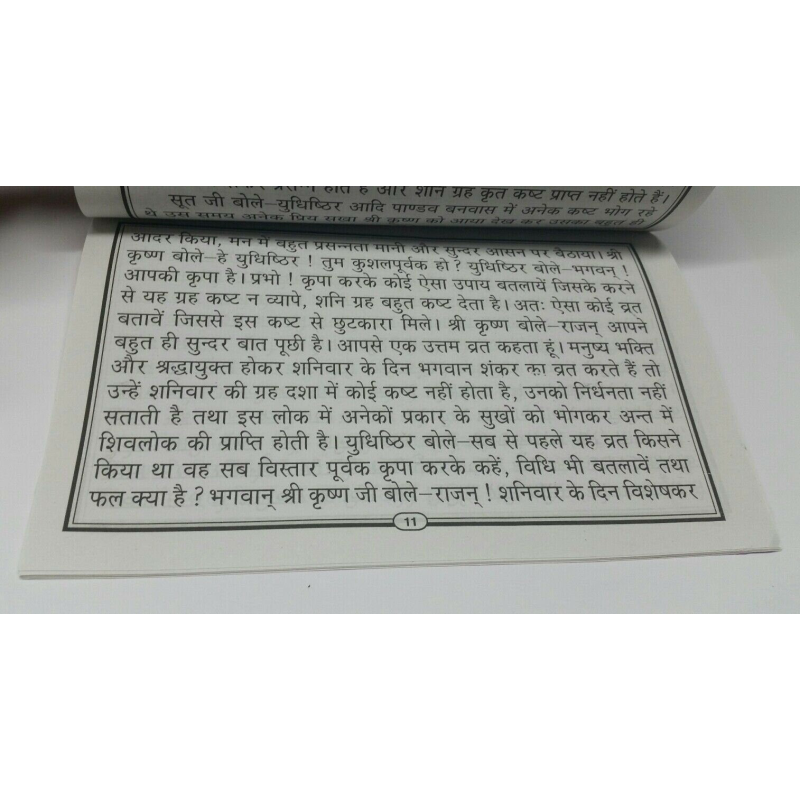 प्रसन्न होते हैं और शनि ग्रह कृत कष्ट प्राप्त नहीं होते हैं।
सूत जी बोले–युधिष्ठिर आदि पाण्डव बनवास में अनेक कष्ट भोग रहे
थे उस समय अनेक प्रिय सखा श्री कृष्ण को आया देख कर उसका बहुत ही
आदर किया, मन में बहुत प्रसन्नता मानी और सुन्दर आसन पर बैठाया। श्री
कृष्ण बोले–हे युधिष्ठिर ! तुम कुशलपूर्वक हो ? युधिष्ठिर बोले–भगवन् !
आपकी कृपा है। प्रभो ! कृपा करके कोई ऐसा उपाय बतलायें जिसके करने
से यह ग्रह कष्ट न व्यापे, शनि ग्रह बहुत कष्ट देता है। अतः ऐसा कोई व्रत
बतावें जिससे इस कष्ट से छुटकारा मिले। श्री कृष्ण बोले–राजन् आपने
बहुत ही सुन्दर बात पूछी है। आपसे एक उत्तम व्रत कहता हूं। मनुष्य भक्ति
और श्रद्धायुक्त होकर शनिवार के दिन भगवान शंकर का व्रत करते हैं तो
उन्हें शनिवार की ग्रह दशा में कोई कष्ट नहीं होता है, उनको निर्धनता नहीं
सताती है तथा इस लोक में अनेकों प्रकार के सुखों को भोगकर अन्त में
शिवलोक की प्राप्ति होती है। युधिष्ठिर बोले–सब से पहले यह व्रत किसने
किया था वह सब विस्तार पूर्वक कृपा करके कहें, विधि भी बतलावें तथा
फल क्या है ? भगवान् श्री कृष्ण जी बोले–राजन् ! शनिवार के दिन विशेषकर
11